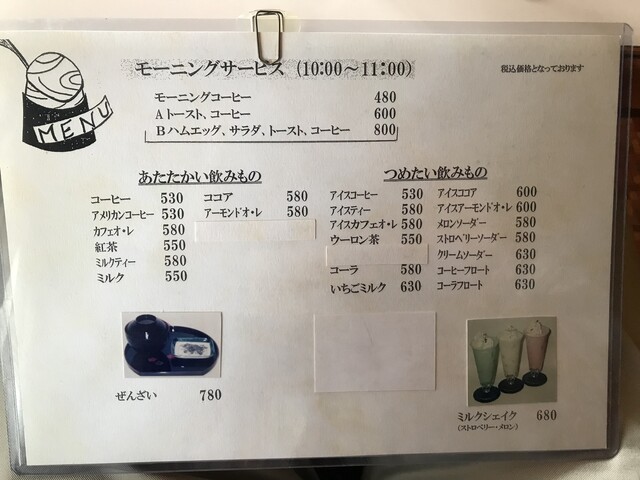 MENU
モーニングサービス (10:00～11:00)
税込価格となっております
モーニングコーヒー 480
Aトースト、コーヒー 600
Bハムエッグ、サラダ、トースト、コーヒー 800
あたたかい飲みもの
コーヒー 530
アメリカンコーヒー 530
カフェオ・レ 580
紅茶 550
ミルクティー 580
ミルク 550
ココア 580
アーモンドオ・レ 580
つめたい飲みもの
アイスコーヒー 530
アイスティー 580
アイスカフェオ・レ 580
ウーロン茶 550
コーラ 580
いちごミルク 630
アイスココア 600
アイスアーモンドオ・レ 600
メロンソーダー 580
ストロベリーソーダー 580
クリームソーダー 630
コーヒーフロート 630
コーラフロート 630
ぜんざい 780
ミルクシェイク 680
(ストロベリー・メロン)